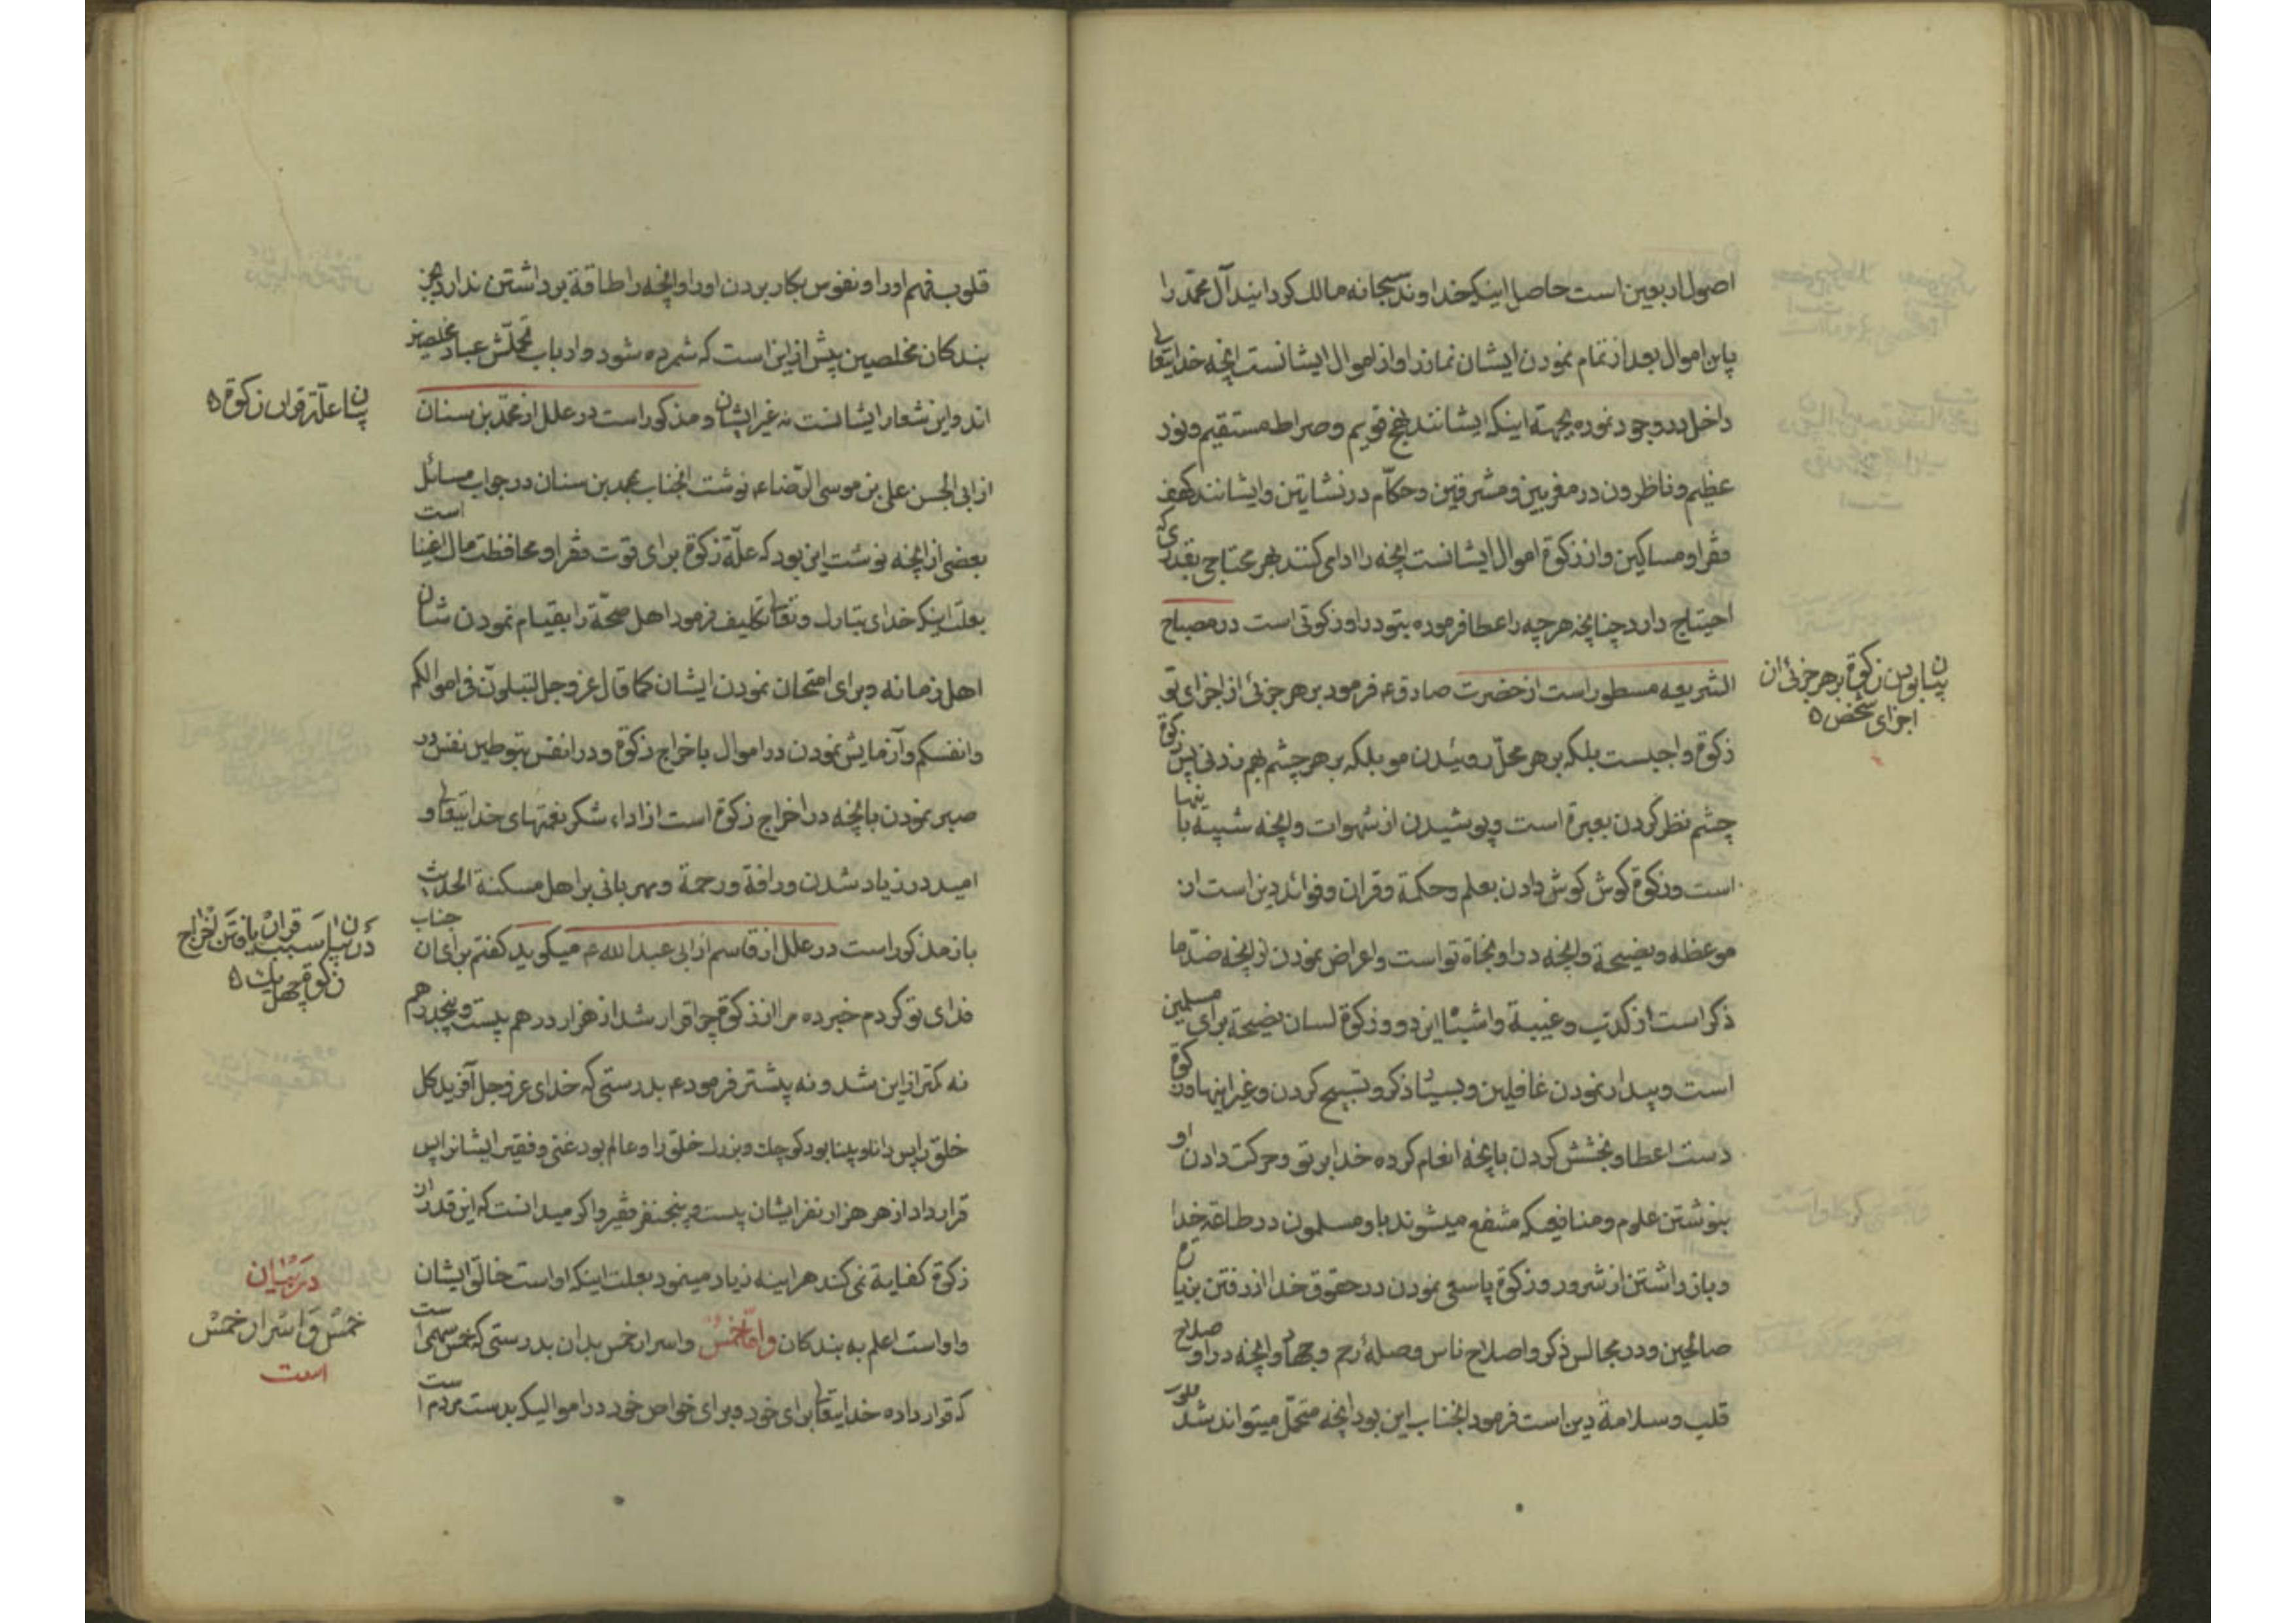 اصول اربعین است حاصل اینکه خداوند سبحانه مالک کردانید آل محمّد را
پاین اموال بعد از تمام نمودن ایشان نماز را و از اموال ایشانست انچه خدایتعالی
داخل در وجود نموده بجهة اینکه ایشانند نهج قویم و صراط مستقیم و نور
عظیم و ناظرون در مغربین و مشرقین و حکّام در نشاتین و ایشانند کهف
فقرا و مساکین و از زکوة اموال ایشانست انچه را ادای کنند بهر محتاج بقدری که
احتیاج دارد چنانچه هر چه را عطا فرموده بتو در او زکوتی است در مصباح
الشریعه مسطور است از حضرت صادق ع فرمود بر هر جزئ از اجزای تو
زکوة واجبست بلکه بر هر محلّ روئیدن مو بلکه بر هر چشم بهم زدنی پس زکوة
چشم نظر کردن بعبرة است و پوشیدن از شهوات و انچه شبیه باینها
است و زکوة کوش کوش دادن بعلم و حکمة و قران و فوائد دین است از
موعظه و نصیحة و انچه در او نجاة تو است و اعراض نمودن از انچه ضدّ ما
ذکر است از کذب و غیبة و اشباه این دو و زکوة لسان نصیحة برای مسلمین
است و بیدار نمودن غافلین و بسیار ذکر و تسبیح کردن و غیر اینها و زکوة
دست اعطا و بخشش کردن بانچه انعام کرده خدا بر تو و حرکت دادن او
بنوشتن علوم و منافعیکه منتفع میشوند باو مسلمون در طاعة خدا
و باز داشتن از شرور و زکوة پا سعی نمودن در حقوق خدا از رفتن بزیارة
صالحین و در مجالس ذکر و اصلاح ناس و صلهٔ رحم و جهاد و انچه در او صلاح
قلب و سلامة دین است فرمود انجناب این بود انچه متحمّل میتواند شد
بیان بودن زکوة بر هر جزئ از
اجزای شخص ۵
قلوب فهم او را و نفوس بکار بردن او را و انچه را طاقة برداشتن ندارد بجز
بندکان مخلصین پیش از این است که شمرده شود و ارباب عباد مخلصین
اند و این شعار ایشانست نه غیر ایشان و مذکور است در علل از محمّد بن سنان
از ابی الحسن علی بن موسی الرّضا ع نوشت انجناب بمحمد بن سنان در جواب مسائل
بعضی از انچه نوشت این بود که علّة زکوة برای قوت فقرا و محافظت مال اغنیا است
بعلّت اینکه خدای تبارک و تعالی تکلیف فرمود اهل صحّة را بقیام نمودن شان
اهل زمانه و برای امتحان نمودن ایشان کما قال عز و جل لتبلونّ فی اموالکم
و انفسکم و آزمایش نمودن در اموال باخراج زکوة و در انفس بتوطین نفس در
صبر نمودن بانچه در اخراج زکوة است از اداء شکر نعمتهای خدایتعالی و
امید در زیاد شدن و رافة و رحمة و مهربانی بر اهل مسکنة الحدیث
باز مذکور است در علل از قاسم از ابی عبد الله ع میکوید کفتم برای ان جناب
فدای تو کردم خبر ده مرا از زکوة چرا قرار شد از هزار درهم بیست و پنجدرهم
نه کمتر از این شد و نه بیشتر فرمود ع بدرستی که خدای عز و جل آفرید کل
خلق را پس دانا و بینا بود کوچک و بزرک خلق را و عالم بود غنی و فقیر ایشانرا پس
قرار داد از هر هزار نفر ایشان بیست و پنجنفر فقیر و اکر میدانست که این قدر از
زکوة کفایة نمی کند هراینه زیاد مینمود بعلت اینکه او است خالق ایشان
و او است اعلم به بندکان و امّا خمس و اسرار خمس بدان بدرستی که خمس سهمی است
که قرار داده خدایتعالی برای خود و برای خواص خود در اموالیکه بدست مردم است
بیان علّة قرار زکوة ۵
در بیان سبب قران یافتن اخراج
زکوة چهل یک ۵
در بیان
خمس و اسرار خمس
است